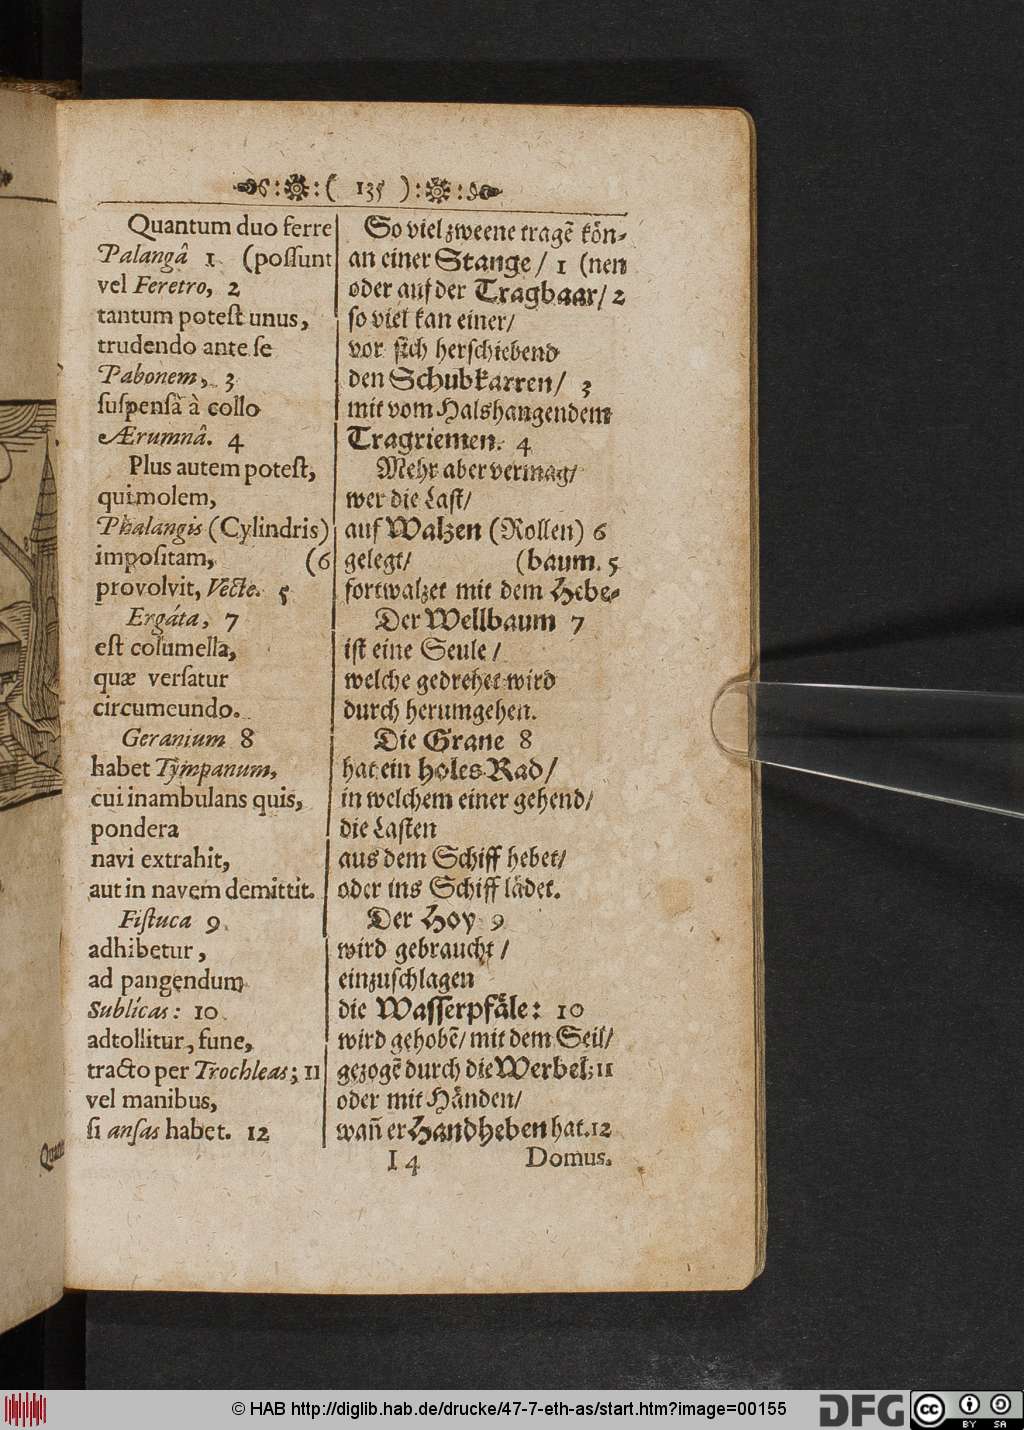 ( 135 )
Quantum duo ferre
Palangâ 1 (possunt
vel Feretro, 2
tantum potest unus,
trudendo ante se
Pabonem, 3
suspensâ à collo
Ærumnâ. 4
Plus autem potest,
qui molem,
Phalangis (Cylindris)
impositam, (6
provolvit, Vecte. 5
Ergáta, 7
est columella,
quæ versatur
circumeundo.
Geranium 8
habet Tympanum,
cui inambulans quis,
pondera
navi extrahit,
aut in navem demittit.
Fistuca 9
adhibetur,
ad pangendum
Sublícas: 10
adtollitur, fune,
tracto per Trochleas; 11
vel manibus,
si ansas habet. 12
So viel zweene tragẽ koͤn-
an einer Stange/ 1 (nen
oder auf der Tragbaar/ 2
so viel kan einer/
vor sich herschiebend
den Schubkarren/ 3
mit vom Hals hangendem
Tragriemen. 4
Mehr aber vermag/
wer die Last/
auf Walzen (Rollen) 6
gelegt/ (baum. 5
fortwalzet mit dem Hebe-
Der Wellbaum 7
ist eine Seule/
welche gedrehet wird
durch herumgehen.
Die Grane 8
hat ein holes Rad/
in welchem einer gehend/
die Lasten
aus dem Schiff hebet/
oder ins Schiff laͤdet.
Der Hoy 9
wird gebraucht/
einzuschlagen
die Wasserpfaͤle: 10
wird gehobẽ/ mit dem Seil/
gezogẽ durch die Werbel; 11
oder mit Haͤnden/
wañ er Handheben hat. 12
I 4 Domus.
© HAB http://diglib.hab.de/drucke/47-7-eth-as/start.htm?image=00155
DFG
cc
BY SA